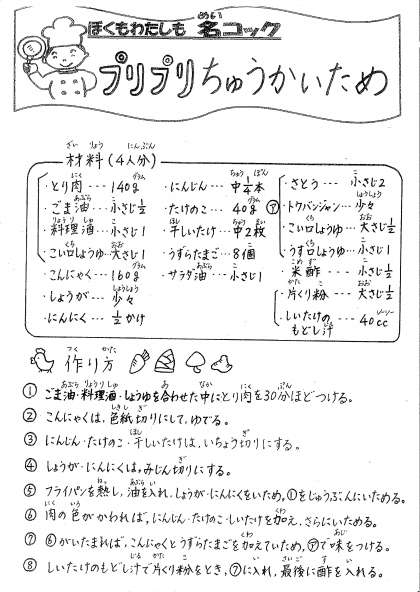 ぼくもわたしも 名コック
プリプリちゅうかいため
材料(4人分)
・とり肉 --- 140g
・ごま油 --- 小さじ1/2
・料理酒 --- 小さじ1
・こい口しょうゆ --- 大さじ1/2
・こんにゃく --- 160g
・しょうが --- 少々
・にんにく --- 1/2かけ
・にんじん --- 中1/4本
・たけのこ --- 40g
・干しいたけ --- 中2枚
・うずらたまご --- 8個
・サラダ油 --- 小さじ1
㋐
・さとう --- 小さじ2
・トウバンジャン --- 少々
・こい口しょうゆ --- 大さじ1/2
・うす口しょうゆ --- 小さじ1
・米酢 --- 小さじ1/2
・片くり粉 --- 大さじ1/2
・しいたけの
もどし汁 --- 40cc
作り方
① ごま油・料理酒・しょうゆを合わせた中にとり肉を30分ほどつける。
② こんにゃくは、色紙切りにして、ゆでる。
③ にんじん・たけのこ・干しいたけは、いちょう切りにする。
④ しょうが・にんにくは、みじん切りにする。
⑤ フライパンを熱し、油を入れ、しょうが・にんにくをいため、①をじゅうぶんにいためる。
⑥ 肉の色がかわれば、にんじん・たけのこ・しいたけを加え、さらにいためる。
⑦ ⑥がいたまれば、こんにゃくとうずらたまごを加えていため、㋐で味をつける。
⑧ しいたけのもどし汁で片くり粉をとき、⑦に入れ、最後に酢を入れる。